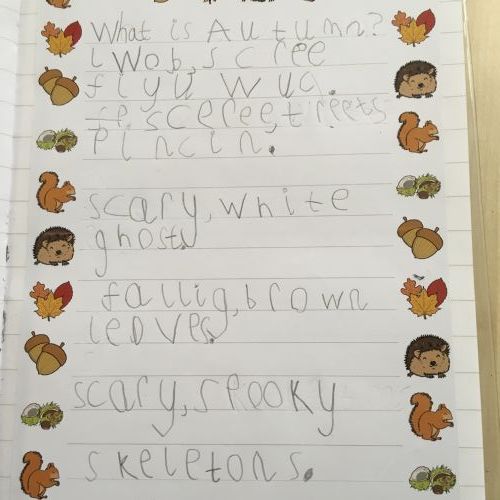 What is Autumn?
i wob, scree
fiyu wug.
sceree, treets
Pincin.
scary, white
ghosts.
fallig, brown
leaves.
scary, spooky
skeletons.